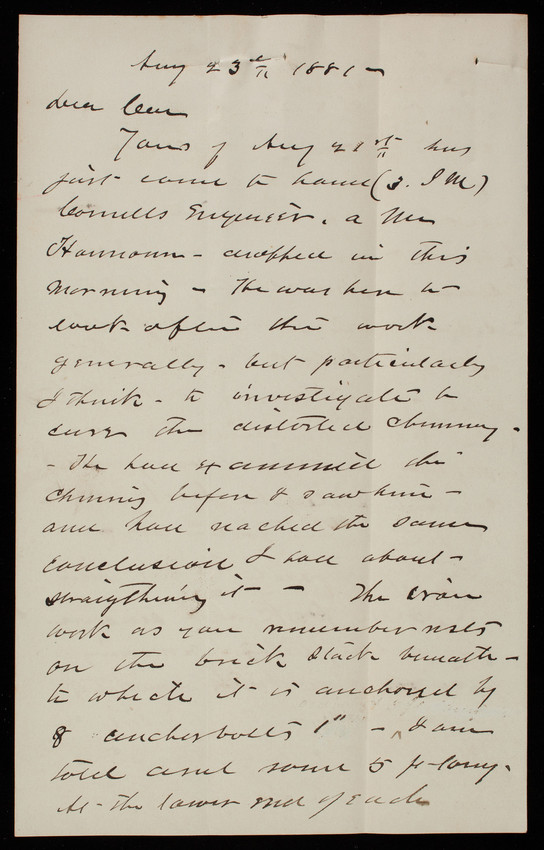 Aug 23d 1881 -
Dear Casey
Yours of Aug 21st has
just come to hand (3. P.M.)
Cornells Engineer. a Mr
- dropped in this
morning - He was here to
look after the work
generally - but particularly
I think - to investigate &
cure the distorted chimney.
- He had examined the
chimney before I saw him -
and had reached the same
conclusion I had about -
straigthening it - The iron
work as you remember rests
on the brick stack beneath -
to which it is anchored by
8 anchor bolts 1" - I am
told and some 5 ft long.
At the lower end of each